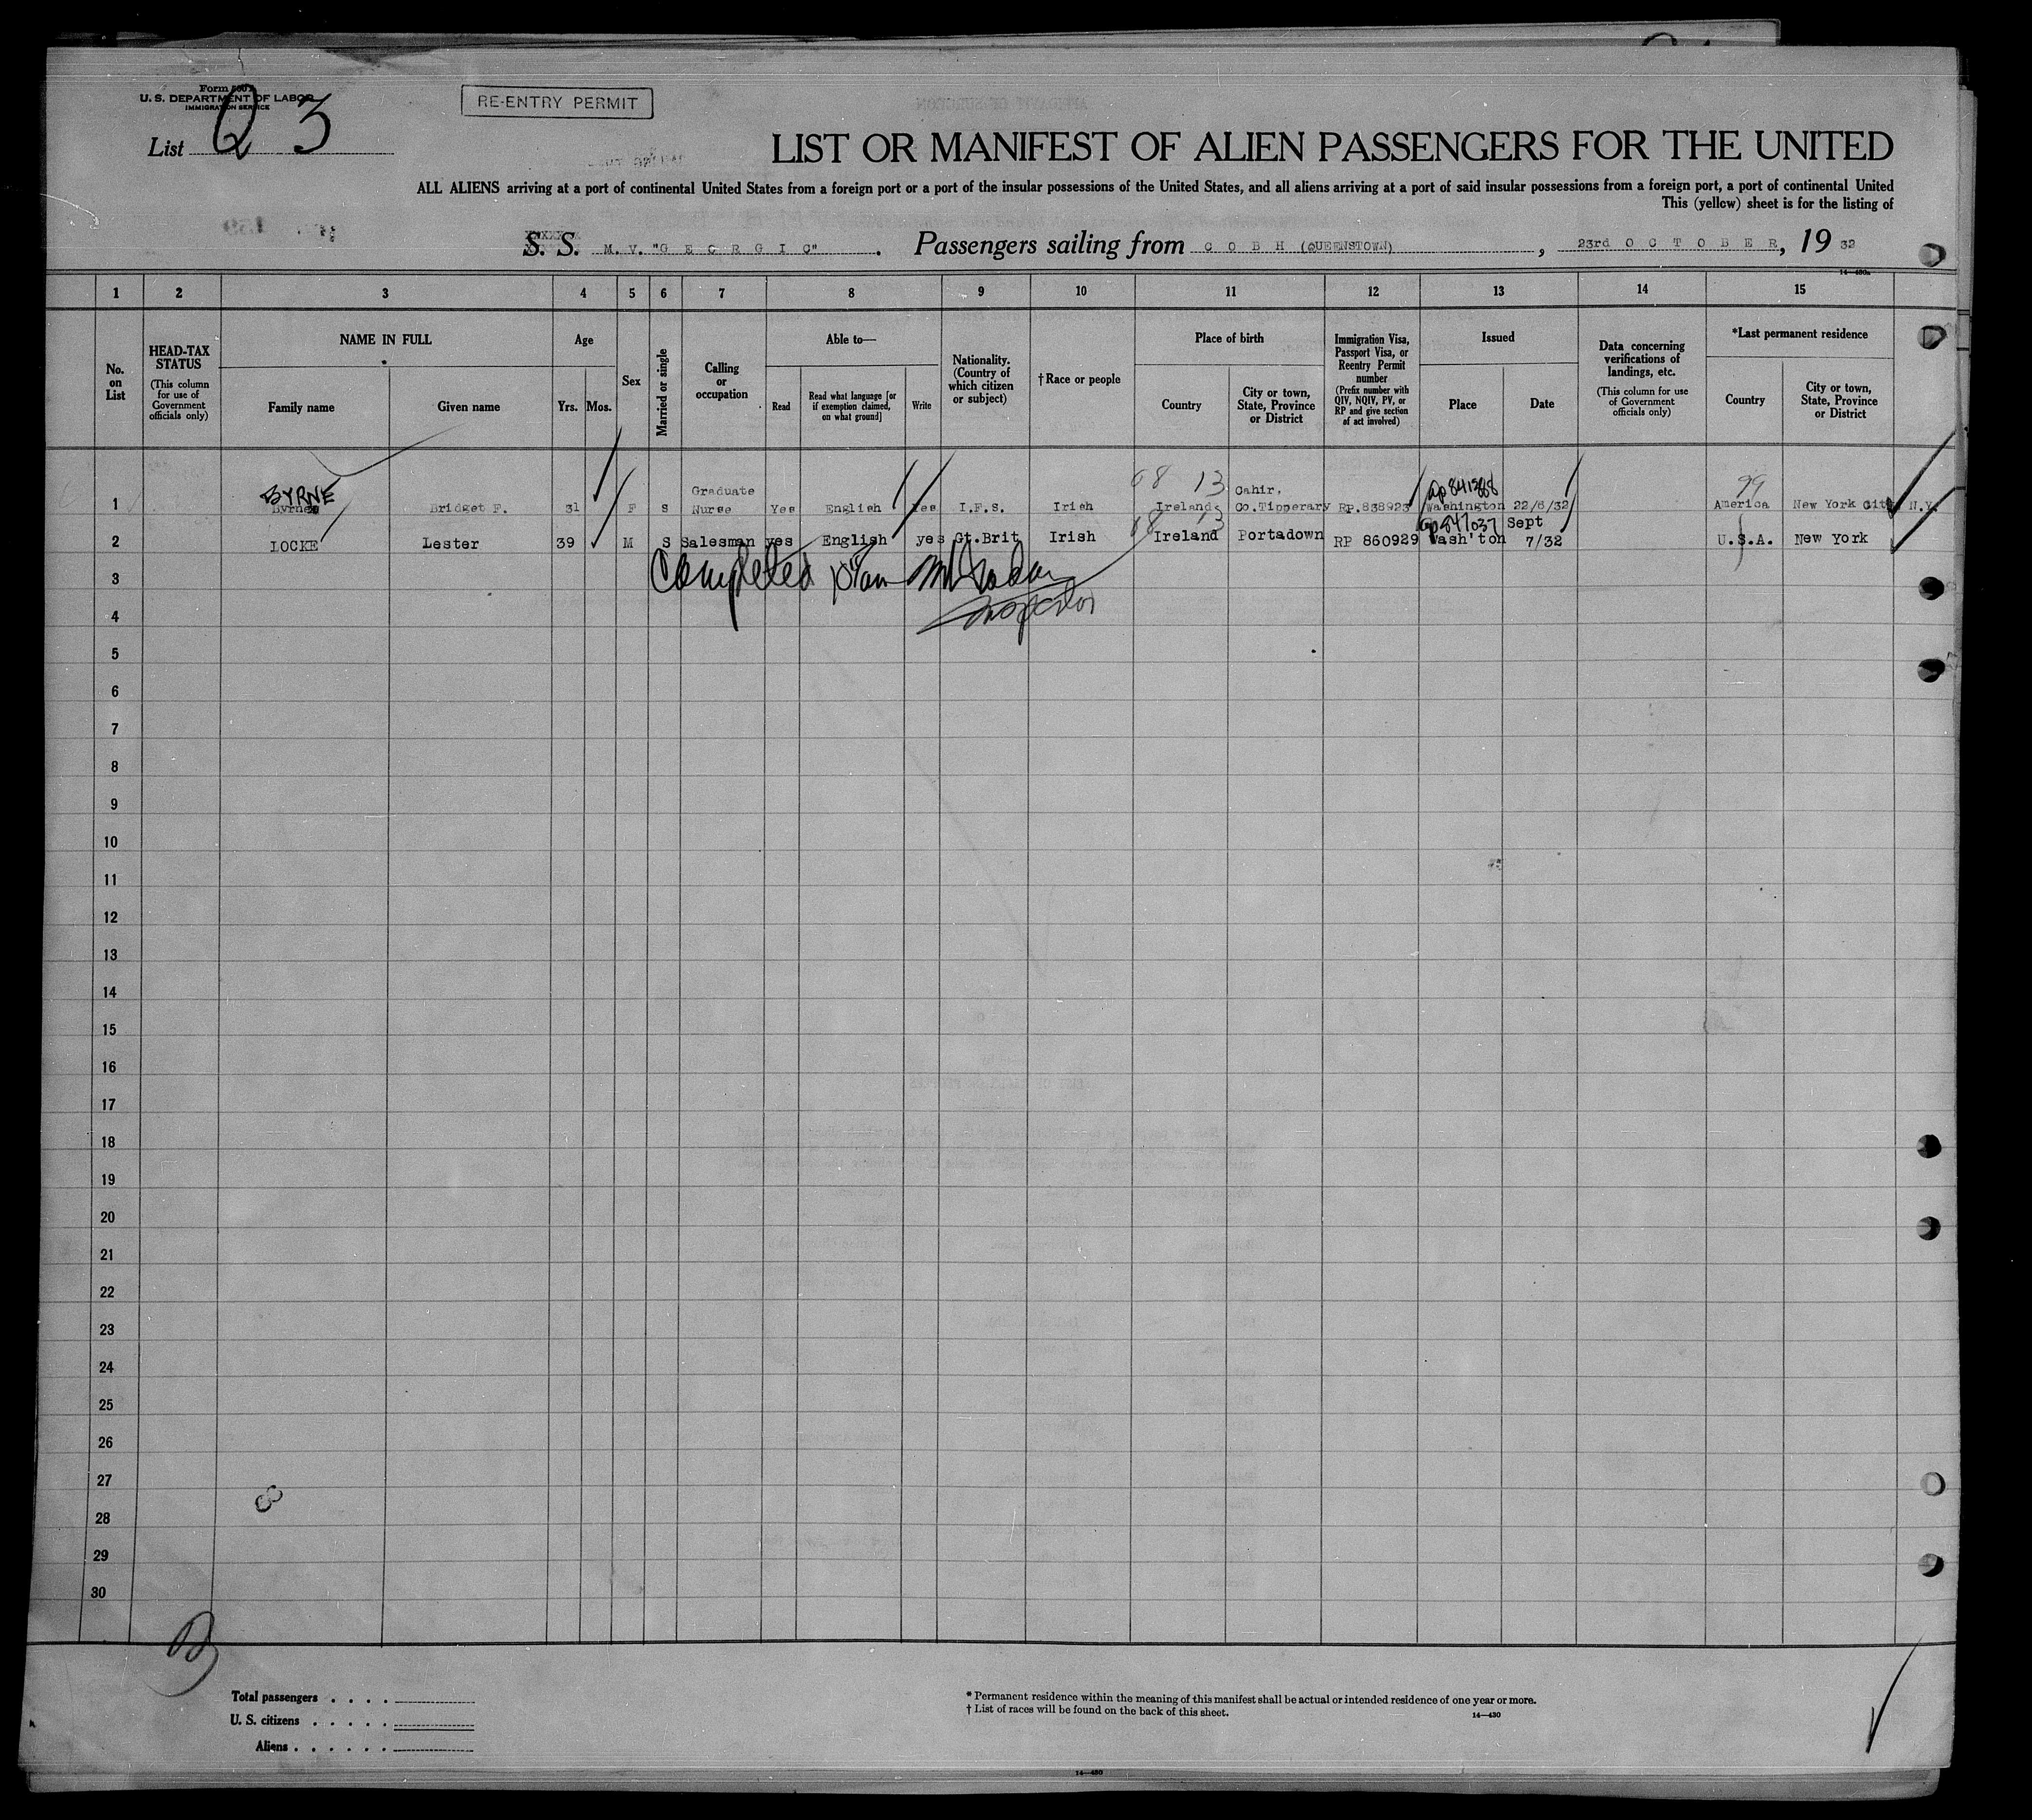 Form 500
U. S. DEPARTMENT OF LABOR
IMMIGRATION SERVICE
RE-ENTRY PERMIT
List Q 3
LIST OR MANIFEST OF ALIEN PASSENGERS FOR THE UNITED
ALL ALIENS arriving at a port of continental United States from a foreign port or a port of the insular possessions of the United States, and all aliens arriving at a port of said insular possessions from a foreign port, a port of continental United
This (yellow) sheet is for the listing of
S. S. M. V. "G E O R G I C". Passengers sailing from C O B H (QUEENSTOWN), 23rd O C T O B E R, 19 32
14—430a
1 2 3 4 5 6 7 8 9 10 11 12 13 14 15
No. on List
HEAD-TAX STATUS
(This column for use of Government officials only)
NAME IN FULL
Family name
Given name
Age
Yrs. Mos.
Sex
Married or single
Calling or occupation
Able to—
Read
Read what language [or if exemption claimed, on what ground]
Write
Nationality. (Country of which citizen or subject)
†Race or people
Place of birth
Country
City or town, State, Province or District
Immigration Visa, Passport Visa, or Reentry Permit number
(Prefix number with QIV, NQIV, PV, or RP and give section of act involved)
Issued
Place
Date
Data concerning verifications of landings, etc.
(This column for use of Government officials only)
*Last permanent residence
Country
City or town, State, Province or District
BYRNE 68 13 ap 841388 99
1 Byrnes Bridget F. 31 F S Graduate Nurse Yes English Yes I.F.S. Irish Ireland Cahir, Co.Tipperary RP.838923 Washington 22/6/32 America New York City N.Y.
68 13 847037
2 LOCKE Lester 39 M S Salesman yes English yes Gt.Brit Irish Ireland Portadown RP 860929 Wash'ton Sept 7/32 U.S.A. New York
Completed
Inspector
3
4
5
6
7
8
9
10
11
12
13
14
15
16
17
18
19
20
21
22
23
24
25
26
27
28
29
30
Total passengers . . . .
U. S. citizens . . . . .
Aliens . . . . . .
* Permanent residence within the meaning of this manifest shall be actual or intended residence of one year or more.
† List of races will be found on the back of this sheet.
14—430
14—430